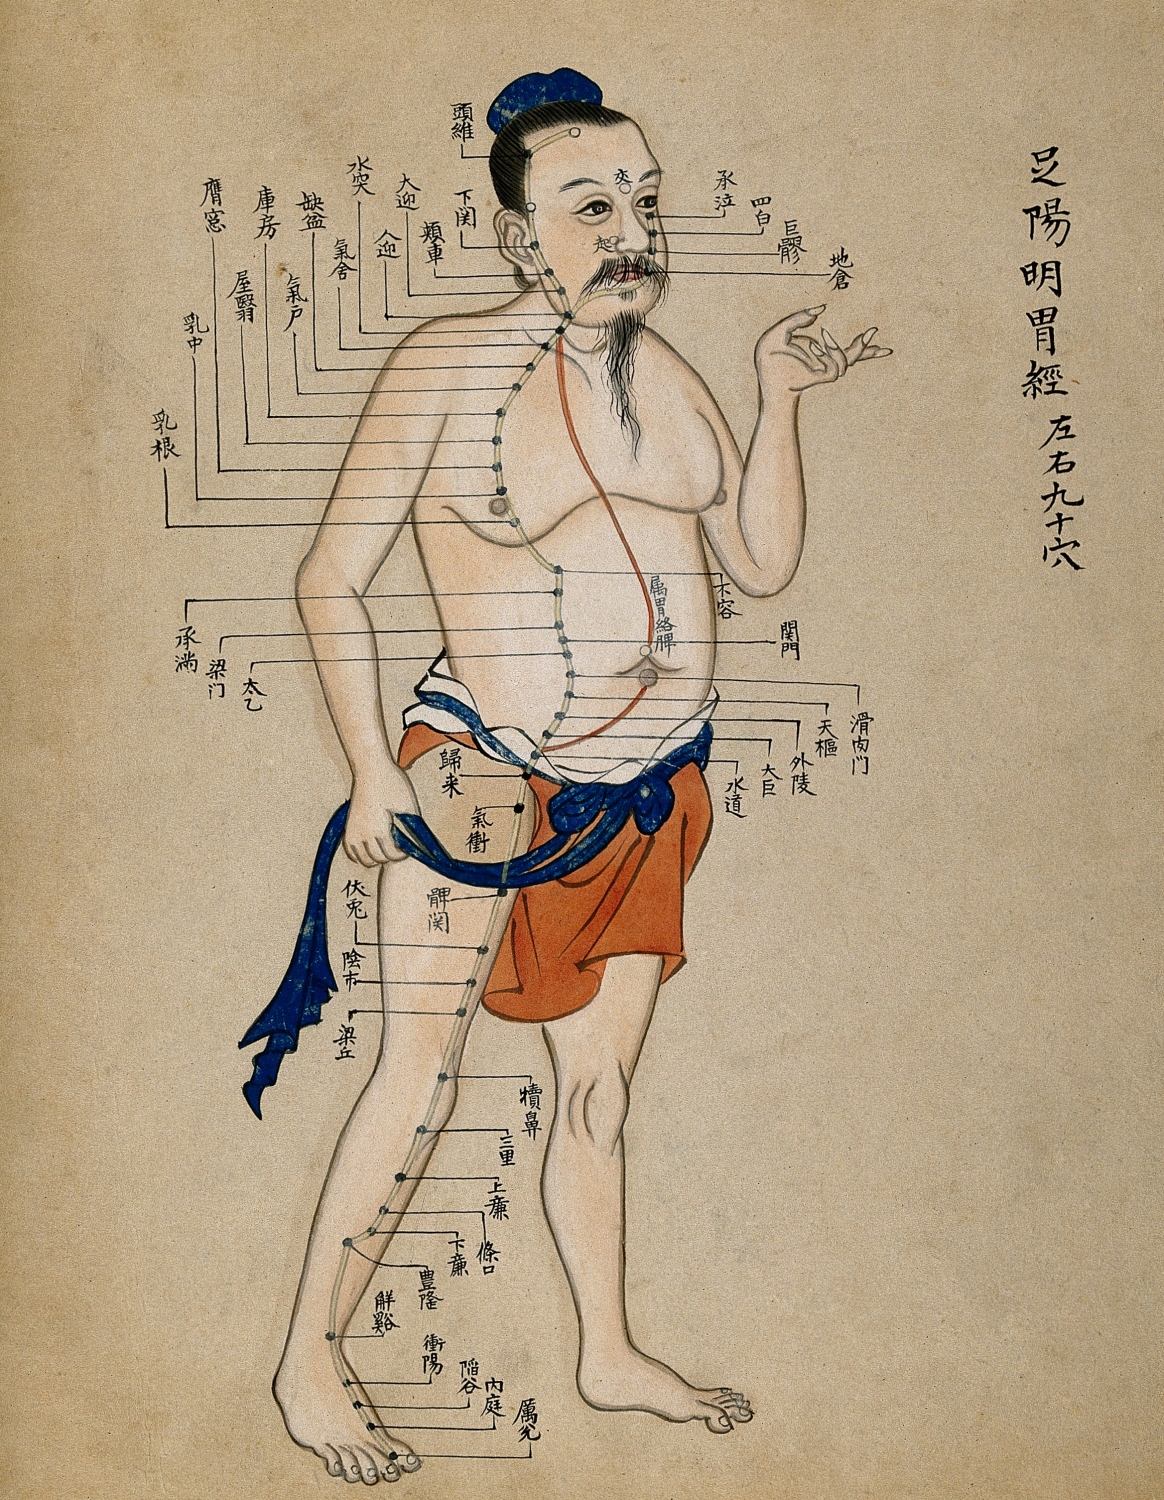 足陽明胃經
左右九十穴
頭維
下関
頬車
大迎
人迎
水突
氣舍
缺盆
氣戶
庫房
屋翳
膺窓
乳中
乳根
交
起
承泣
四白
巨髎
地倉
属胃絡脾
不容
承満
梁门
関門
太乙
滑肉门
天樞
外陵
大巨
水道
歸来
氣衝
髀関
伏兎
陰市
梁丘
犢鼻
三里
上廉
條口
下廉
豊隆
解谿
衝陽
陷谷
内庭
厲兌